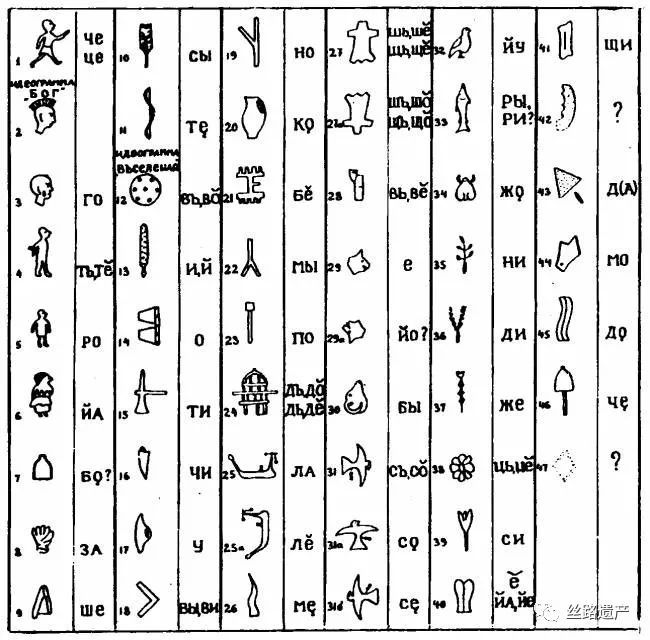 1 ЧЕ
ЦЕ
ИДЕОГРАММА
"БОГ"
2
3 ГО
4 ТЬ,ТĔ
5 РО
6 ЙА
7 БǪ?
8 ЗА
9 ШЕ
10 СЫ
11 ТĘ
ИДЕОГРАММА
ВЪСЕЛЕНАЙ
12 ВЪ,ВŎ
13 И,Й
14 О
15 ТИ
16 ЧИ
17 У
18 ВЫ,ВИ
19 НО
20 КǪ
21 БĔ
22 МЫ
23 ПО
24 ДЪ,ДŎ
ДЬ,ДĔ
25 ЛА
25а ЛĔ
26 МĘ
27 ШЬ,ШĔ
ЩЬ,ЩĔ
27а ШЪ,ШŎ
ЩЪ,ЩŎ
28 ВЬ,ВĔ
29 Е
29а ЙО?
30 БЫ
31 СЪ,СŎ
31а СǪ
31б СĘ
32 ЙУ
33 РЫ,
РИ?
34 ЖǪ
35 НИ
36 ДИ
37 ЖЕ
38 ЦЬ,ЦĔ
39 СИ
40 Ĕ
ЙА,ЙЕ
41 ЩИ
42 ?
43 Д(А)
44 МО
45 ДǪ
46 ЧĘ
47 ?
丝路遗产